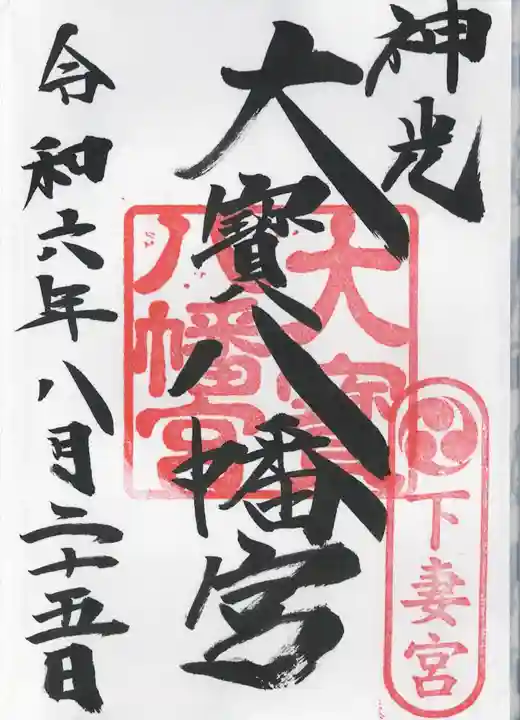 神光
大寳八幡宮
令和六年八月二十五日
大寳
八幡宮
下妻宮